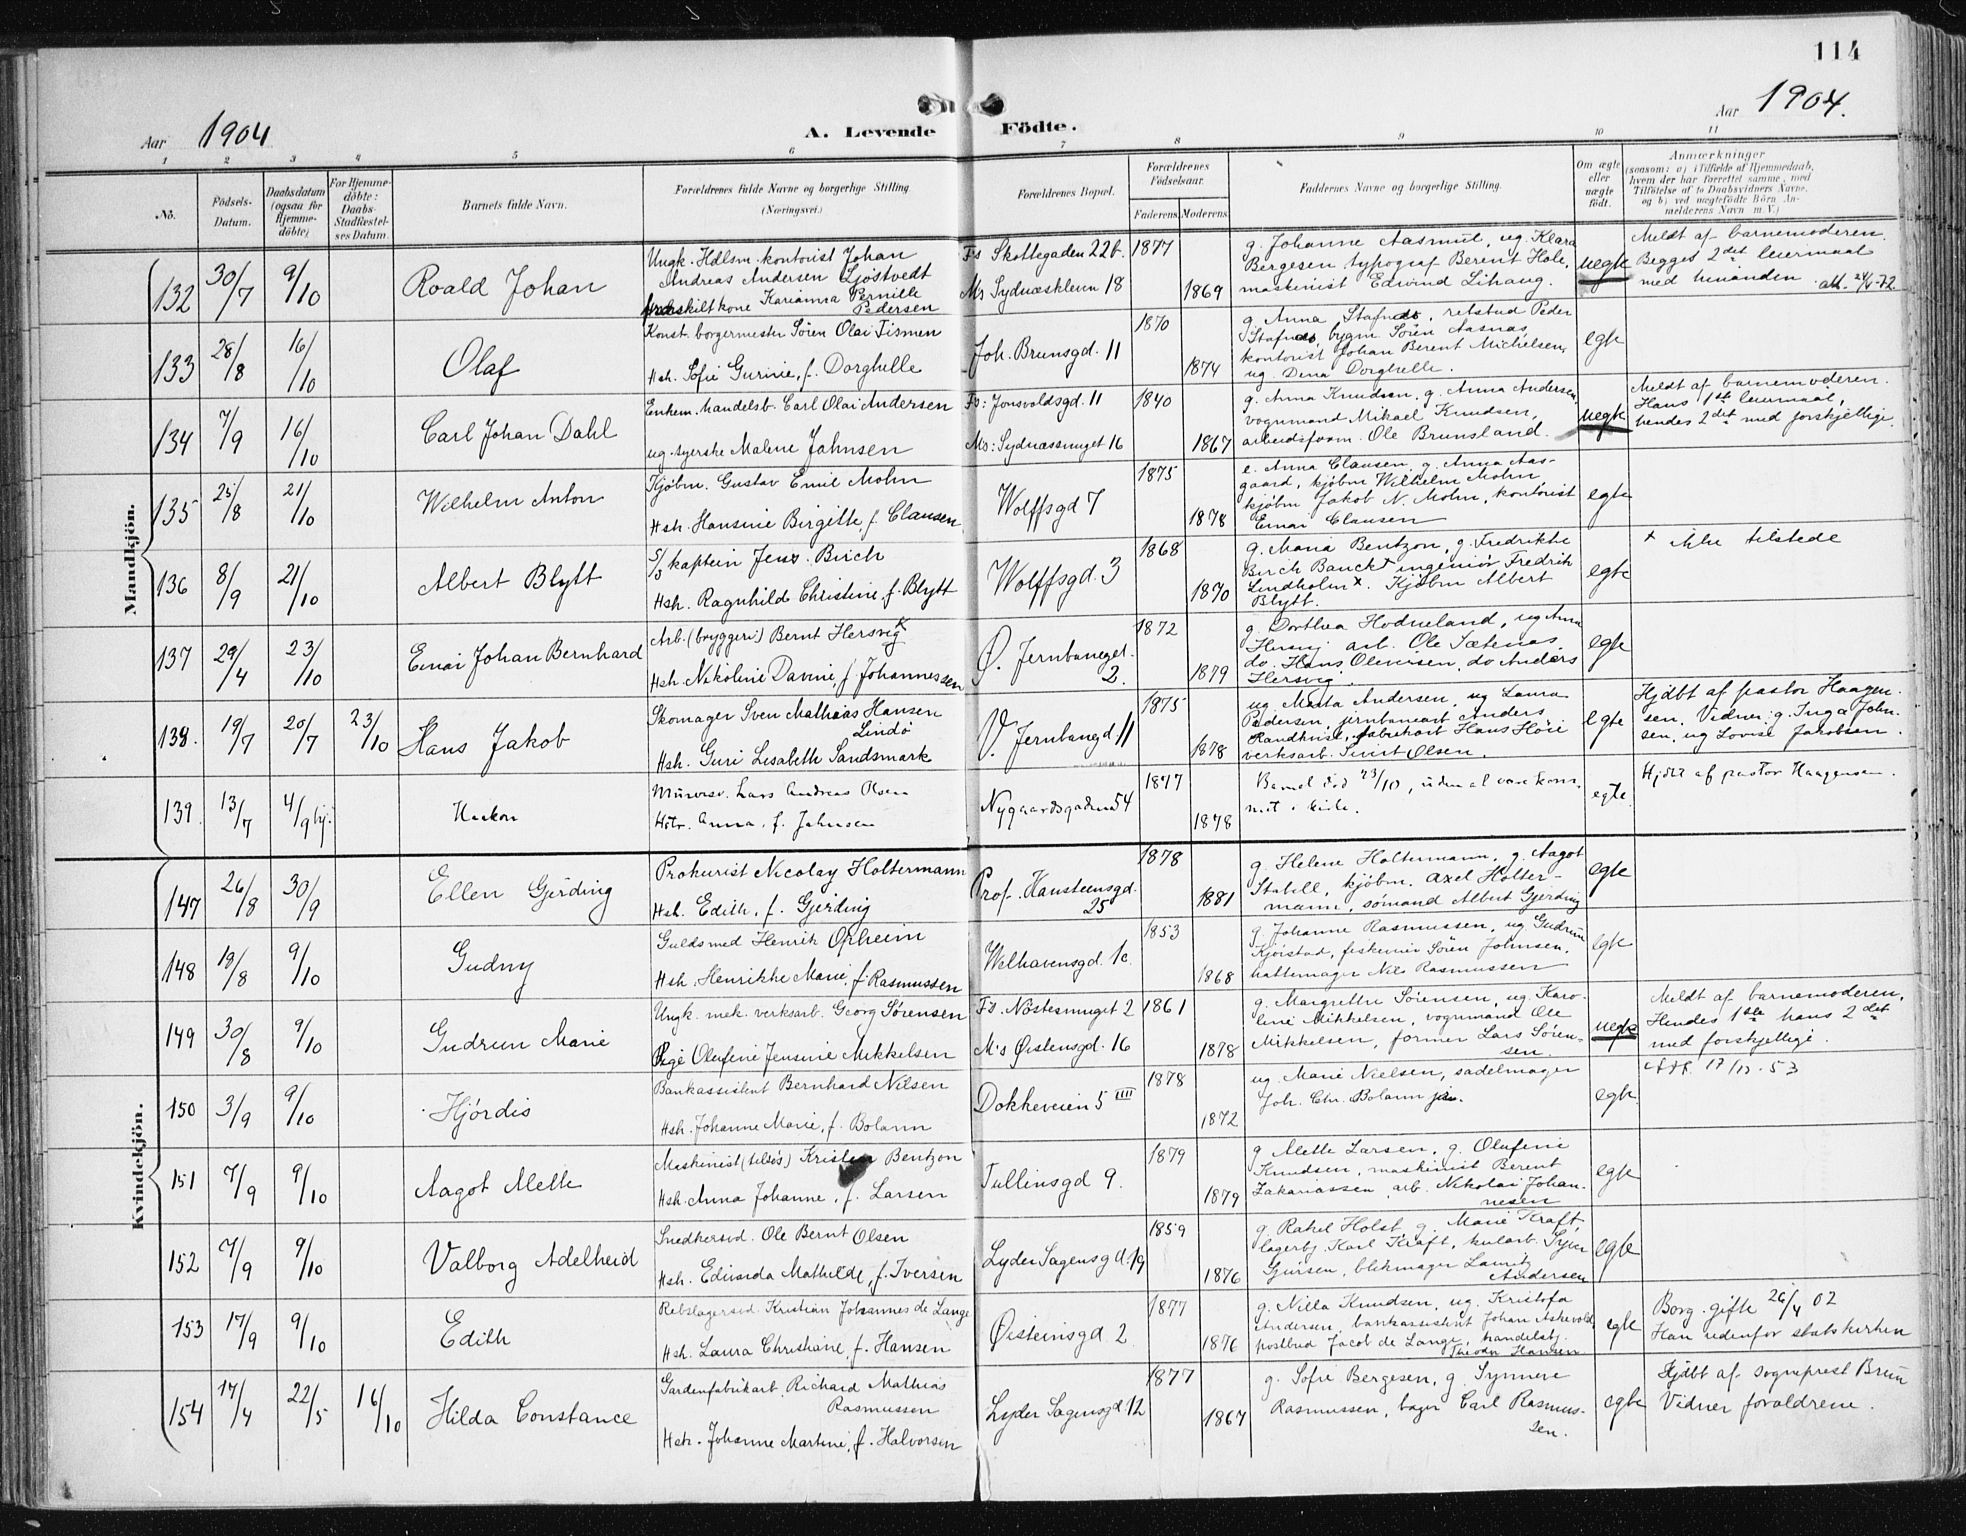 114
Aar 1904
A. Levende Födte.
Aar 1904.
1 2 3 4 5 6 7 8 9 10 11
No.
Födsels-Datum.
Daabsdatum (ogsaa for Hjemme-döbte)
For Hjemme-döbte: Daabs-Stadfæstel-ses Datum.
Barnets fulde Navn.
Forældrenes fulde Navne og borgerlige Stilling. (Næringsvei.)
Forældrenes Bopæl.
Forældrenes Födselsaar.
Faderens. Moderens.
Faddernes Navne og borgerlige Stilling.
Om ægte eller uægte födt.
Anmærkninger
(saasom: a) i Tilfælde af Hjemmedaab,
hvem der har forrettet samme, med
Tilföielse af to Daabsvidners Navne,
og b) ved uægtefödte Börn An-
melderens Navn m. V.)
Mandkjön.
132 30/7 9/10 Roald Johan
Ungk. Hdlsm. kontorist Johan
Andreas Andersen Sjöstvedt
fraskilt kone Karianna Pernille
Pedersen
Fs Skottegaden 22b. 1877
Ms Sydnæsklenn 18 1869
g. Johanne Aasmul, ug. Klara
Bergesen, typograf Berent Hole,
maskinist Edvind Lihaug.
uegte
Meldt af barnemoderen.
Begges 2det leiermaal
med hinanden
133 28/8 16/10 Olaf
Konst. borgermester Sören Olai Tismen
Hsh. Sofie Gurine, f. Dorghelle
Joh. Brunsgd. 11 1870 1874
g. Anna Stafnds, retsbud Peder
Stafnds, bygm Sören Aasnas,
kontorist Johan Berent Michelsen,
ug. Dina Dorghelle.
egte
134 7/9 16/10 Carl Johan Dahl
Enkem. handelsb. Carl Olai Andersen
ug. syerske Malene Johnsen
Fs: Jonsvoldsgd. 11 1840
Ms: Sydnæssmuget 16 1867
g. Anna Knudsen, g. Anna Andersen,
vognmand Mikael Knudsen,
arbeidsform. Ole Brunsland.
uegte
Meldt af barnemoderen.
Hans 1ste leiermaal,
hendes 2det med forskjellige.
135 25/8 21/10 Wilhelm Anton
Kjöbm. Gustav Emil Mohn
Hsh. Hansine Birgitte, f. Clausen
Wolffsgd 7 1875 1878
e. Anna Clausen, g. Anna Aas-
gaard, kjöbm Wilhelm Mohn
kjöbm Jakob N. Mohn, kontorist
Einar Clausen
egte
136 8/9 21/10 Albert Blytt
S/S kaptein Jens Birch
Hsh. Ragnhild Christine, f. Blytt
Wolffsgd. 3 1868 1870
g. Maria Bentzon, g. Fredrikke
Birch Banck x ingeniör Fredrik
Lindholm x. Kjöbm Albert
Blytt.
egte
x ikke tilstede
137 29/4 23/10 Einar Johan Bernhard
Arb. (bryggeri) Bernt Hersvig
Hsh. Nikoline Davine, f. Johannessen
Ø. Jernbanegt.
2.
1872 1879
g. Dorthea Hodneland, ug Anna
Hersvig arb. Ole Sætenas,
do. Hans Olenisen, do Anders
Hersvig.
egte
138. 19/7 20/7 23/10 Hans Jakob
Skomager Sven Mathias Hansen
Lindö
Hsh. Guri Lisabeth Sandsmark
V. Jernbanegd 11 1875 1878
ug. Marta Andersen, ug Laura
Pedersen, jernbanearb Anders
Randhust, fabrikarb Hans Höie
verksarb. Sivert Olsen.
egte
Hjdbt af pastor Haagen-
sen. Vidner: g. Inga John-
sen, ug Lovise Jakobsen.
139. 13/7 4/9 hj. Haakon
Murersv. Lars Andreas Olsen
Hstr. Anna, f. Johnsen
Nygaardsgaden 54 1877 1878
Barnet död 23/10, uden at være kom-
met i kirke.
egte
Hjdbt af pastor Haagensen.
Kvindekjön.
147 26/8 30/9 Ellen Gjerding
Prokurist Nicolay Holtermann
Hsh. Edith, f. Gjerding
Prof. Hansteensgd.
25
1878 1881
g. Helene Holtermann, g. Aagot
Stabell, kjöbm. Axel Holter-
mann, sömand Albert Gjerding
egte
148 19/8 9/10 Gudny
Guldsmed Henrik Opheim
Hsh. Henrikke Marie, f. Rasmussen
Welhavensgd. 1c. 1853 1868
g. Johanne Rasmussen, ug Gudrun
Kjörstad, fiskeriv Sören Johnsen,
hattemager Nils Rasmussen
egte
149 30/8 9/10 Gudrun Marie
Ungk. mek. verksarb. Georg Sörensen
Pige Olufine Jensine Mikkelsen
Fs. Nöstesmuget 2 1861
Ms Øistensgd. 16 1878
g. Margrethe Sörensen, ug. Karo-
line Mikkelsen, vognmand Ole
Mikkelsen, former Lars Sören-
sen.
uegte
Meldt af barnemoderen.
Hendes 1ste hans 2det
med forskjellige.
150 3/9 9/10 Hjördis
Bankassistent Bernhard Nilsen
Hsh. Johanne Marie, f. Bolann
Dokkeveien 5 IIII 1878 1872
ug. Marie Nielsen, sadelmager
Joh. Chr. Bolann jun.
egte
151 7/9 9/10 Aagot Mette
Maskinist (tilsös) Kristen Bentzon
Hsh. Anna Johanne, f. Larsen
Tullinsgd 9. 1879 1879
g Mette Larsen, g. Olufine
Knudsen, maskinist Berent
Zakariassen, arb. Nikolai Johan-
nesen
egte
152 7/9 9/10 Valborg Adelheid
Snedkersvd. Ole Bernt Olsen
Hsh. Edvarda Mathilde, f. Iversen
Lyder Sagensgd. 19 1859 1876
g. Rakel Holst, g. Marie Kraft,
lagerbj. Karl Kraft, kularb. Syver
Gjersen, blikmager Lauritz
Andersen
egte
153 17/9 9/10 Edith
Rebslagersvd. Kristian Johannes de Lange
Hsh. Laura Christiane, f. Hansen
Øisteinsgd. 2 1877 1876
g. Nilla Knudsen, ug. Kristofa
Andersen, bankassistent Johan Askevold,
postbud Jacob de Lange, handelsbj.
Theodor Hansen
egte
Borg. gifte 26/4 02
Han udenfor statskirken
154 17/4 22/5 16/10 Hilda Constance
Gardenfabrikarb. Richard Mathias
Rasmussen
Hsh. Johanne Martine, f. Halvorsen
Lyder Sagensgd. 12 1877 1867
g. Sofie Bergesen, g. Synneve
Rasmussen, bager Carl Rasmus-
sen.
egte
Hjdbt af sogneprest Brun
Vidner forældrene.